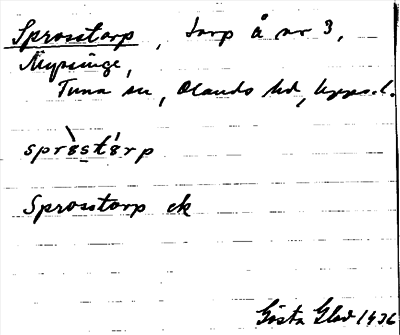 Sprosstorp, torp å nr 3,
Nysinge,
Tuna sn, Olands hd, Upps. l.
sprɵ̀stɵ́rp
Sprosstorp ek
Gösta Glad 1936